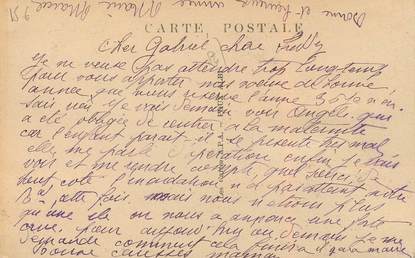 Bonne et heureuse année Marie Marcel
CARTE POSTALE
Cher Gabriel, chère
Je ne veux pas attendre trop longtemps
pour vous apporter nos vœux de bonne
année que nous réserve l'année
sais rien je vais demain voir Angèle qui
a été obligée de rentrer a la maternité
car l'enfant parait-il se présente très mal
elle me parle d'opération enfin je vais
voir et me rendre compte, quel
tout coté l'inondation n'a pas atteint notre
cette fois mais nous n'étions plus
qu'une île on nous a annoncé une forte
crue pour aujourd'hui ou demain je me
demande comment cela finira
bonne caresses maman